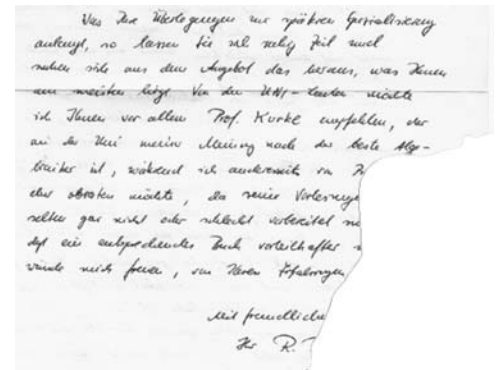 Was Ihre Überlegungen zur späteren Spezialisierung
anlangt, so lassen Sie sich ruhig Zeit und
suchen sich aus dem Angebot das heraus, was Ihnen
am meisten liegt. Von den UNI-Leuten möchte
ich Ihnen vor allem Prof. Kurke empfehlen, der
an der Uni meiner Meinung nach der beste Alge-
braiker ist, während ich andererseits von
eher abraten möchte, da seine Vorlesunge
selten gar nicht oder schlecht vorbereitet
ein entsprechendes Buch vorteilhafter
würde mich freuen, von Ihren Erfahrungen
Mit freundliche
Ihr R.